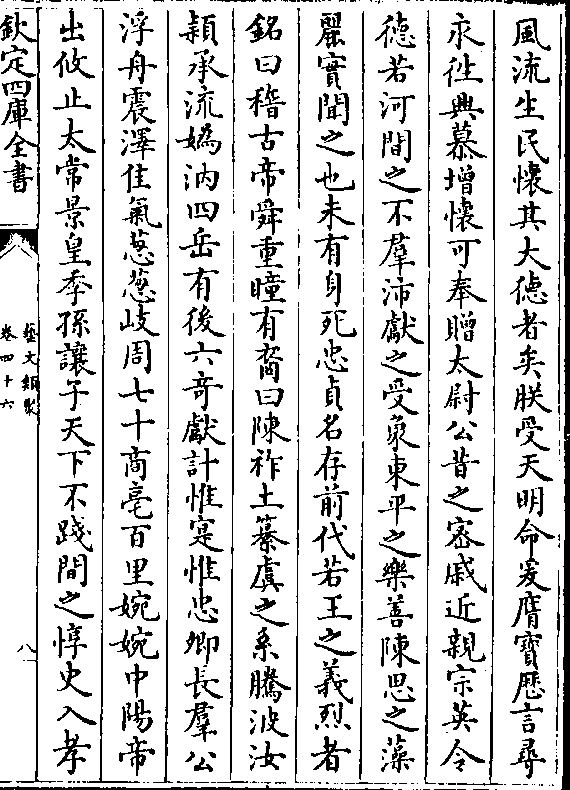 風流生民懷其大德者矣朕受天明命爰膺寳歴言尋
永徃興慕增懷可奉贈太尉公昔之宻戚近親宗英令
徳若河間之不羣沛獻之受象東平之樂善陳思之藻
麗實聞之也未有身死忠貞名存前代若王之義烈者
銘曰稽古帝舜重瞳有裔曰陳祚土纂虞之系騰波汝
潁承流媯汭四岳有後六竒獻計惟寔惟忠卿長羣公
浮舟震澤佳氣葱葱岐周七十商亳百里婉婉中陽帝
出攸止太常景皇季孫讓子天下不踐間之惇史入孝
欽定四庫全書
藝文類聚
卷四十六
八